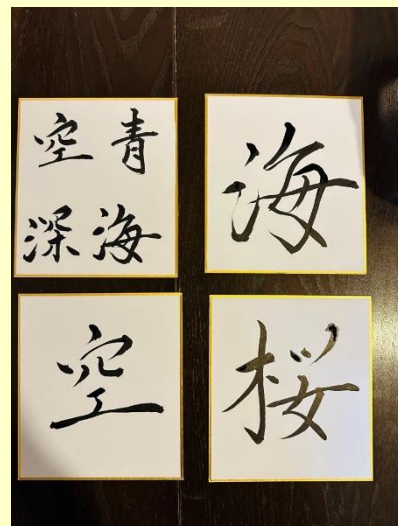 青海
空深
海
空
桜